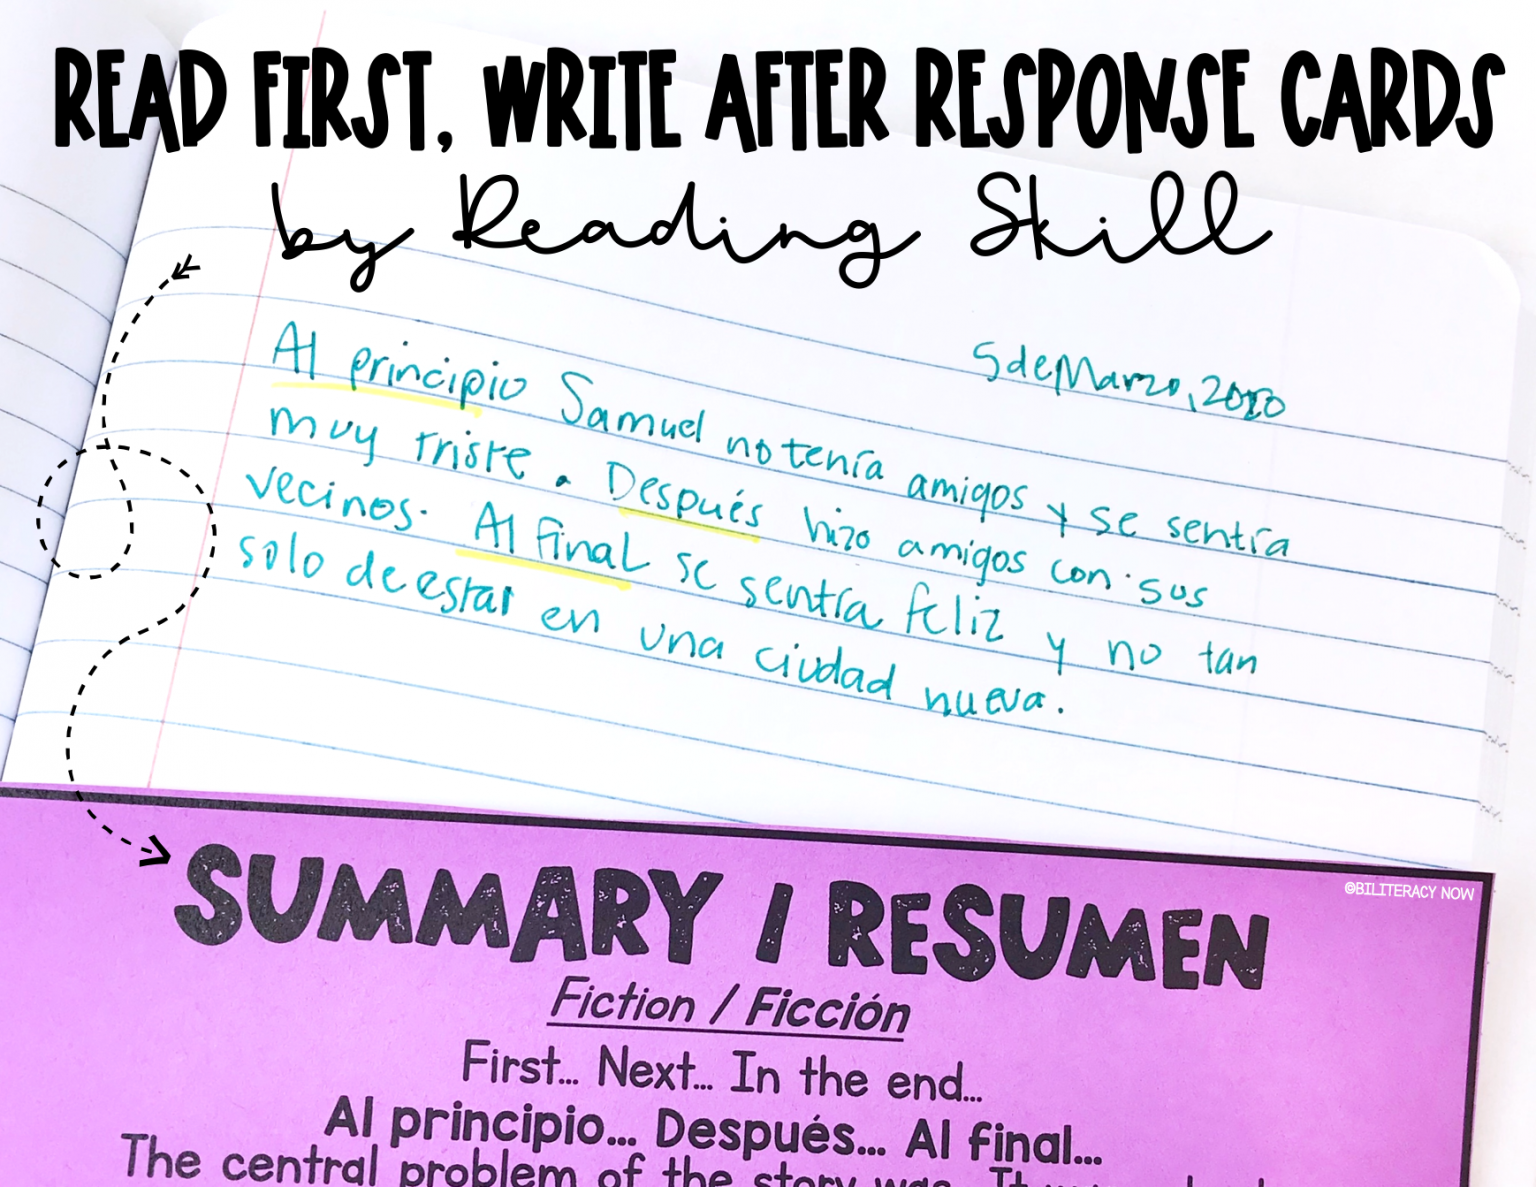 READ FIRST, WRITE AFTER RESPONSE CARDS
by Reading Skill
5 de Marzo, 2020
Al principio Samuel no tenía amigos y se sentía
muy triste. Después hizo amigos con sus
vecinos. Al final se sentía feliz y no tan
solo de estar en una ciudad nueva.
©BILITERACY NOW
SUMMARY / RESUMEN
Fiction / Ficción
First... Next... In the end...
Al principio... Después... Al final...
The central problem of the story was